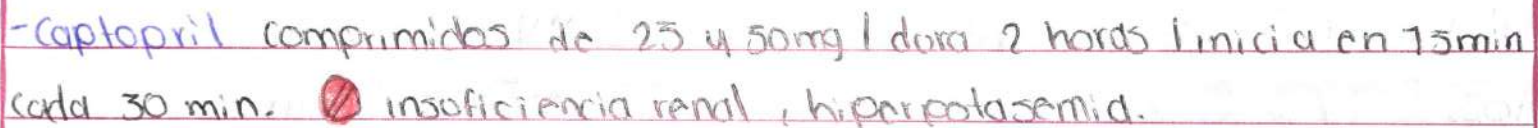 -Captopril comprimidos de 25 y 50mg / dura 2 horas / inicia en 15min
cada 30 min. insuficiencia renal, hiperpotasemia.